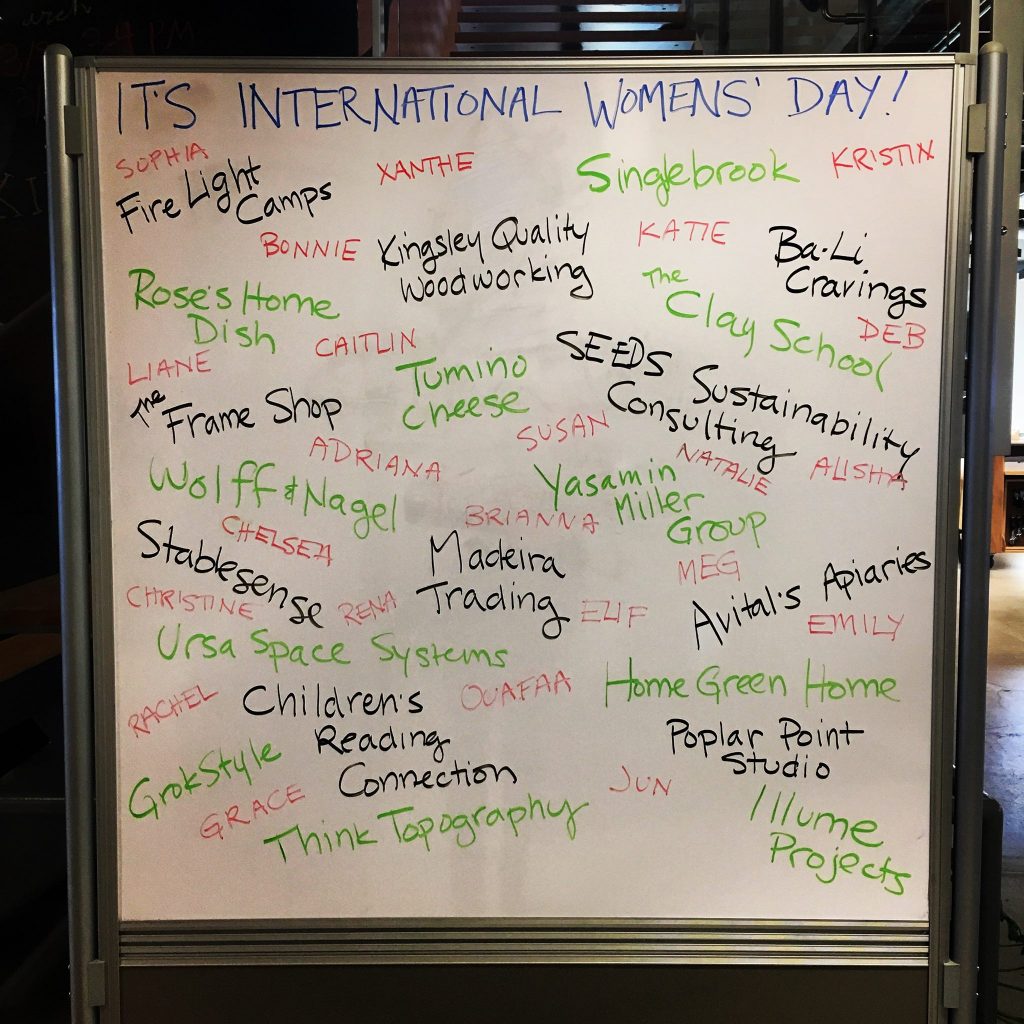 IT'S INTERNATIONAL WOMENS' DAY!
SOPHIA
XANTHE
Singlebrook
KRISTIN
Fire Light
Camps
BONNIE
Kingsley Quality
Woodworking
KATIE
Ba-Li
Cravings
Rose's Home
Dish
The
Clay School
DEB
LIANE
CAITLIN
Tumino
Cheese
SEEDS Sustainability
Consulting
The
Frame Shop
SUSAN
ADRIANA
NATALIE
ALISHA
Wolff & Nagel
Yasamin
Miller
Group
BRIANNA
CHELSEA
Stablesense
Madeira
Trading
MEG
Avital's Apiaries
CHRISTINE
RENA
ELIF
EMILY
Ursa Space Systems
RACHEL
Children's
Reading
Connection
OUAFAA
Home Green Home
Poplar Point
Studio
GrokStyle
GRACE
JUN
Think Topography
Illume
Projects